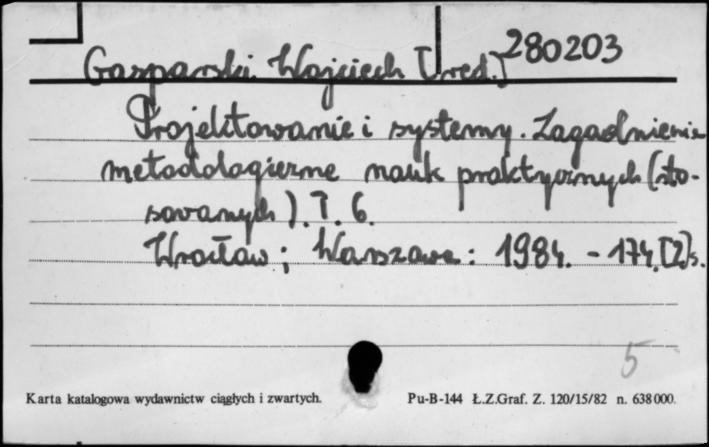 280203
Gasparski Wojciech [red.]
Projektowanie i systemy. Zagadnienia
metodologiczne nauk praktycznych (sto-
sowanych). T. 6.
Wrocław; Warszawa: 1984. - 174, [2] s.
5
Karta katalogowa wydawnictw ciągłych i zwartych. Pu-B-144 Ł.Z.Graf. Z. 120/15/82 n. 638 000.